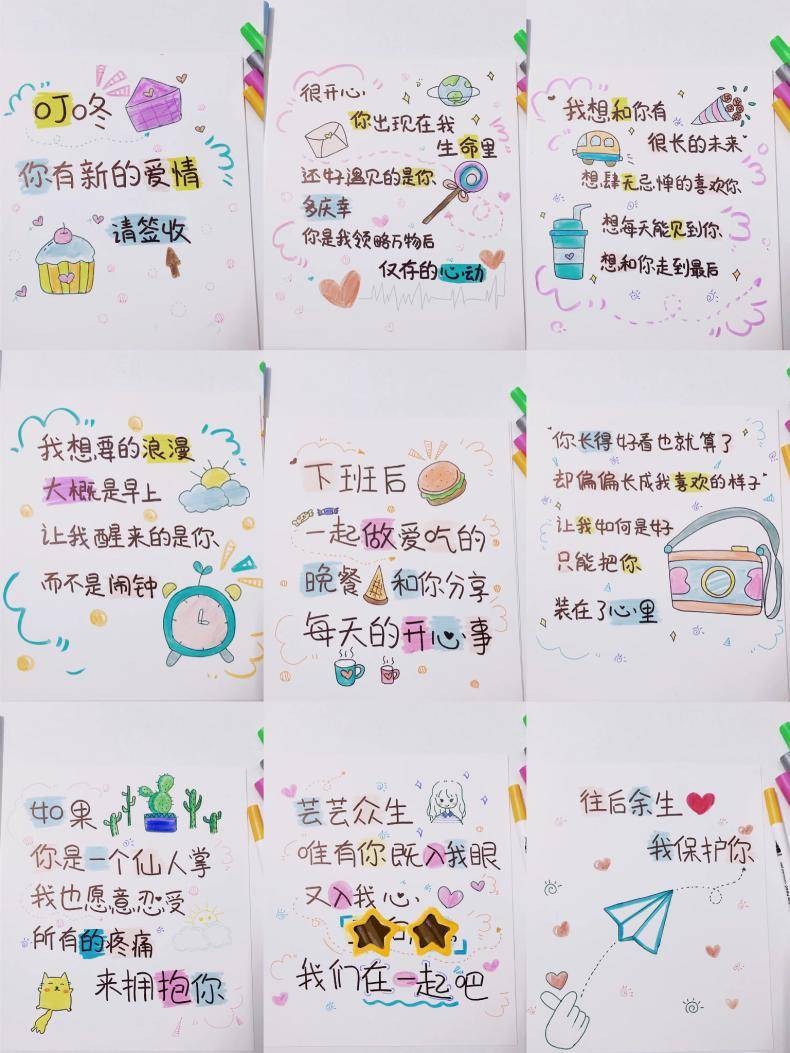 叮咚
你有新的爱情
请签收
很开心
你出现在我
生命里
还好遇见的是你
多庆幸
你是我领略万物后
仅存的心动
我想和你有
很长的未来
想肆无忌惮的喜欢你
想每天能见到你
想和你走到最后
我想要的浪漫
大概是早上
让我醒来的是你
而不是闹钟
下班后
一起做爱吃的
晚餐和你分享
每天的开心事
你长得好看也就算了
却偏偏长成我喜欢的样子
让我如何是好
只能把你
装在了心里
如果
你是一个仙人掌
我也愿意忍受
所有的疼痛
来拥抱你
芸芸众生
唯有你既入我眼
又入我心
我们在一起吧
往后余生
我保护你